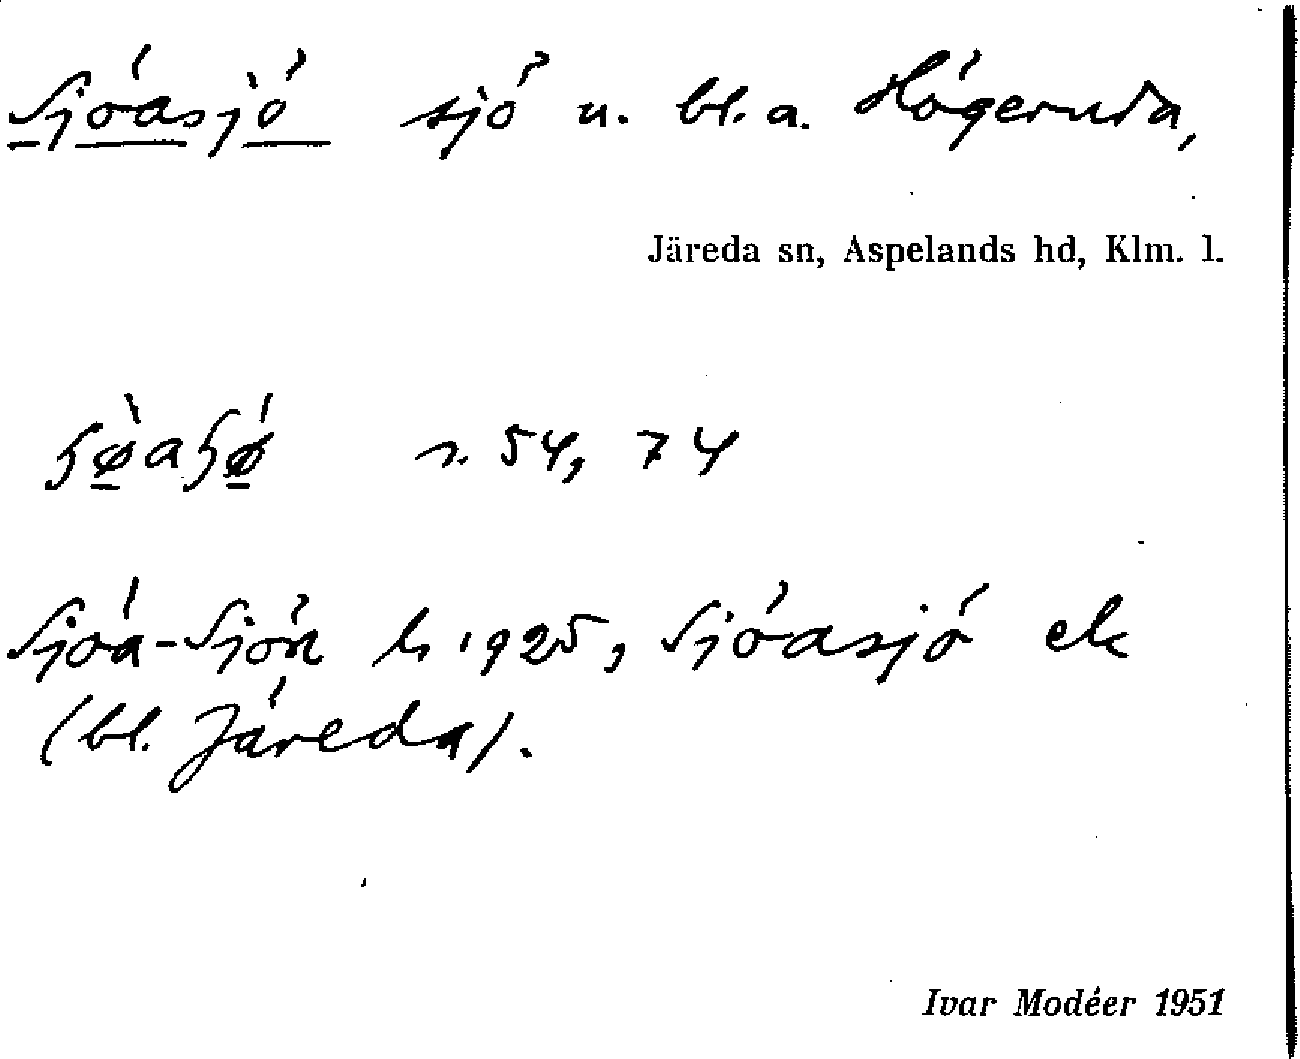 Sjöasjö sjö u. bl. a. Högeruda,
Järeda sn, Aspelands hd, Klm. l.
s. 54, 74
Sjöa-Sjön h 1925, Sjöasjö ek
(bl. Järeda).
Ivar Modéer 1951